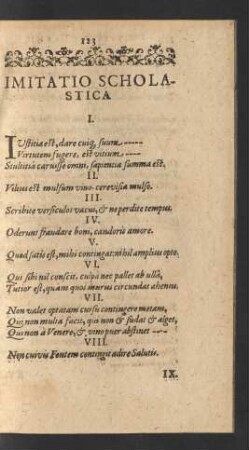 123
IMITATIO SCHOLA-
STICA
I.
IVstitia est, dare cuiq, suum ----
Virtutem fugere, est vitium ----
Stultitia caruisse omni, sapientia summa est.
II.
Vilius est mulsum vino. cerevisia mulso.
III.
Scribite versiculos vacui, & ne perdite tempus.
IV.
Oderunt fraudare boni, candoris amore.
V.
Quod satis est, mihi contingat: nihil amplius opto.
VI.
Qui sibi nil conscit, culpa nec pallet ab ulla,
Tutior est, quam quoi murus circundas ahenus.
VII.
Non valet optatam cursu contingere metam,
Qui non multa facit, qui non & sudat & alget,
Qui non à Venere, & vino puer abstinet ---
VIII.
Non cuivis Fontem contingit adire Salutis.
IX.